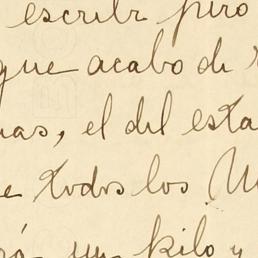 escribir pero
que acabo de
nas, el del esta
e todos los
rá un kilo y